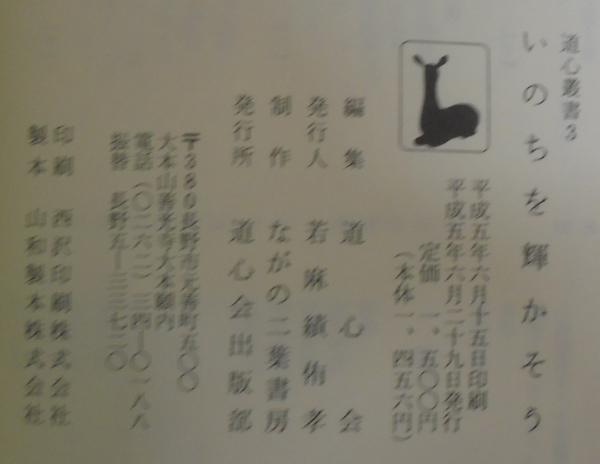 道心叢書3
いのちを輝かそう
平成五年六月十五日印刷
平成五年六月二十九日発行
定価 一、五〇〇円
(本体一、四五六円)
編集 道心会
発行人 若麻績侑孝
制作 ながの二葉書房
発行所 道心会出版部
〒380長野市元善町五〇〇
大本山善光寺大本願内
電話(〇二六二)三四―〇一八八
振替 長野五―三三七二〇
印刷 西沢印刷株式会社
製本 山和製本株式会社